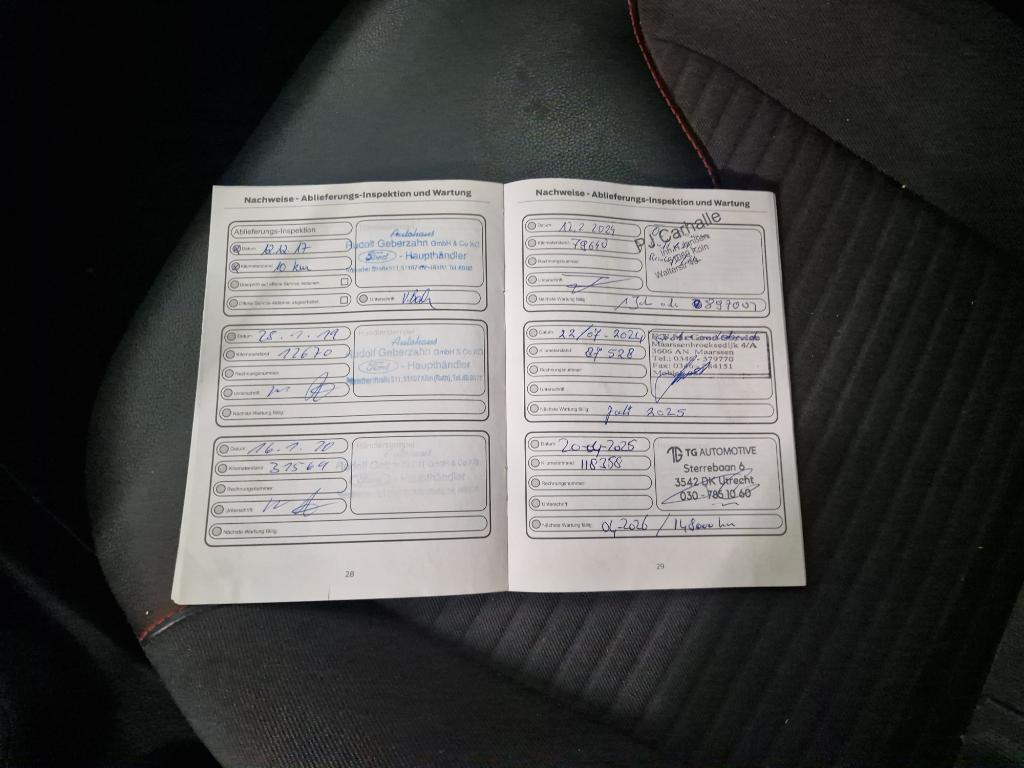 Nachweise - Ablieferungs-Inspektion und Wartung
Ablieferungs-Inspektion
Datum 12.12.17
Kilometerstand 10 km
Überprüft auf offene Service-Aktionen
Offene Service-Aktionen abgearbeitet
Unterschrift
Autohaus
Rudolf Geberzahn GmbH & Co KG
Ford - Haupthändler
Datum 28.1.19
Kilometerstand 12670
Rechnungsnummer
Unterschrift
Nächste Wartung fällig:
Händlerstempel
Autohaus
Rudolf Geberzahn GmbH & Co KG
Ford - Haupthändler
Datum 16.1.20
Kilometerstand 31569
Rechnungsnummer
Unterschrift
Nächste Wartung fällig:
Händlerstempel
Autohaus
Rudolf Geberzahn GmbH & Co KG
Ford - Haupthändler
28
Nachweise - Ablieferungs-Inspektion und Wartung
Datum 12.2.2024
Kilometerstand 79640
Rechnungsnummer
Unterschrift
Nächste Wartung fällig: 1 Jah
PJ Carhalle
Köln
Datum 22/07-2024
Kilometerstand 87528
Rechnungsnummer
Unterschrift
Nächste Wartung fällig: Juli 2025
Maarssenbroeksedijk 4/A
3606 AN Maarssen
Tel.: 0346 - 579770
Fax: 0346
Datum 20-04-2025
Kilometerstand 118358
Rechnungsnummer
Unterschrift
Nächste Wartung fällig: 04-2026 / 148000 km
TG AUTOMOTIVE
Sterrebaan 6
3542 DK Utrecht
030 - 785 10 60
29